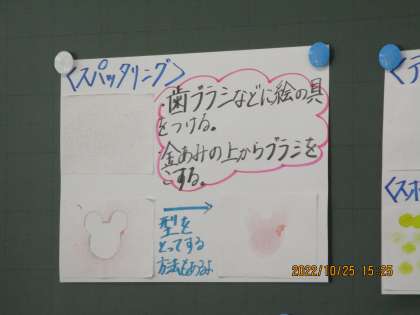 〈スパッタリング〉
・歯ブラシなどに絵の具
をつける。
金あみの上からブラシを
こする。
型を
とってする
方法もあるよ
〈ア
〈スポ
2022/10/25 15:25